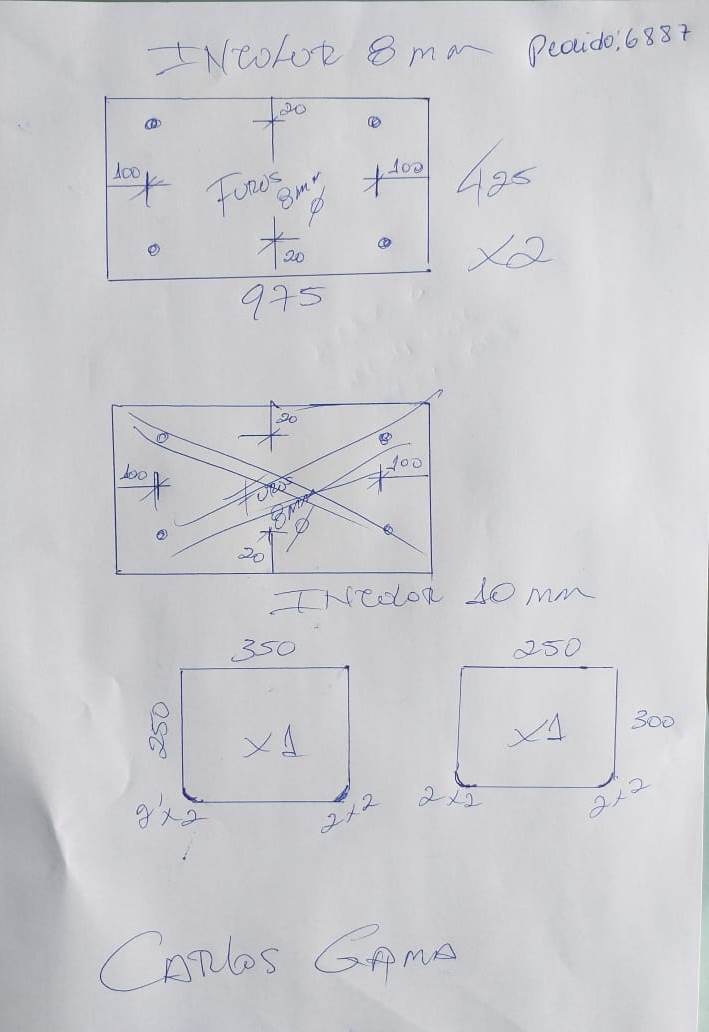 INCOLOR 8 mm Pedido: 6887
20
100 100
FUROS
8mm
Ø
20
425
x2
975
20
100 100
FUROS
8mm
Ø
20
INCOLOR 10 mm
350 250
250 x1 x1 300
2x2 2x2 2x2 2x2
CARLOS GAMA